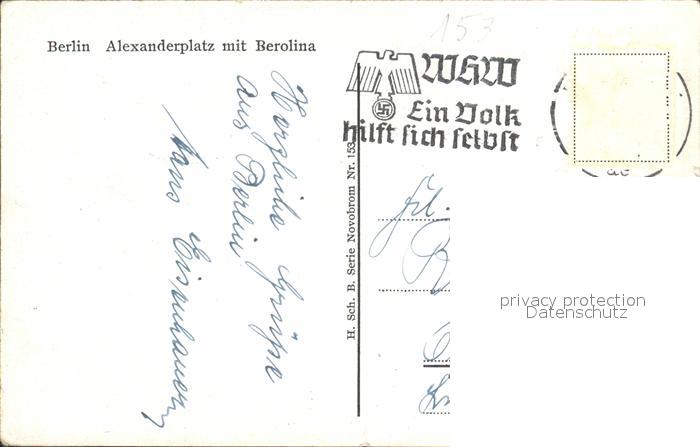 153
Berlin Alexanderplatz mit Berolina
WHW
Ein Volk
hilft sich selbst
Herzliche Grüße
aus Berlin
Hans Eisenhauer
H. Sch. B. Serie Novobrom Nr. 153
Frl.
privacy protection
Datenschutz